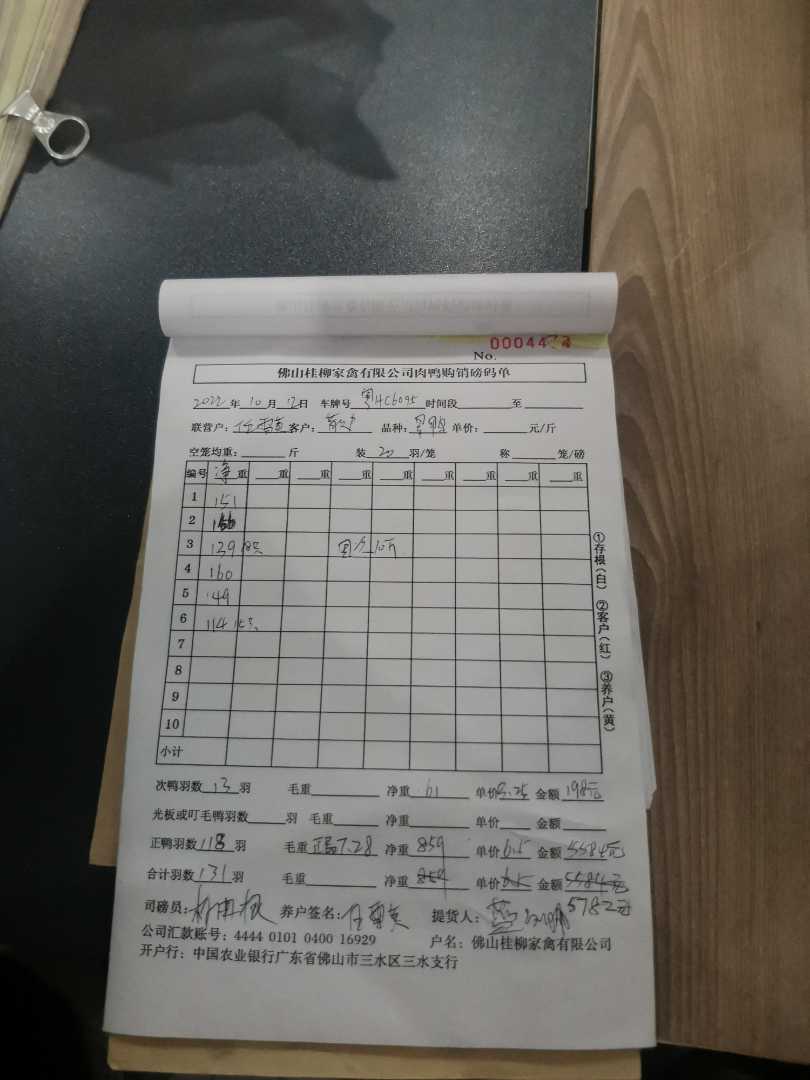 No. 0004474
佛山桂柳家禽有限公司肉鸭购销磅码单
2022年10月12日 车牌号 粤HC6095 时间段 至
联营户： 客户：散户 品种：黑鸭 单价： 元/斤
空笼均重： 斤 装 20 羽/笼 称 笼/磅
编号 净重 重 重 重 重 重 重 重 重
1 151
2
3 139 18只
4 160
5 149
6 114
7
8
9
10
小计
①存根（白） ②客户（红） ③养户（黄）
次鸭羽数 13 羽 毛重 净重 61 单价 3.25 金额 198元
光板或叮毛鸭羽数 羽 毛重 净重 单价 金额
正鸭羽数 118 羽 毛重 7.28 净重 859 单价 6.5 金额 5584元
合计羽数 131 羽 毛重 净重 859 单价 6.5 金额 5584元
5782元
司磅员： 养户签名： 提货人：
公司汇款账号：4444 0101 0400 16929 户名：佛山桂柳家禽有限公司
开户行：中国农业银行广东省佛山市三水区三水支行